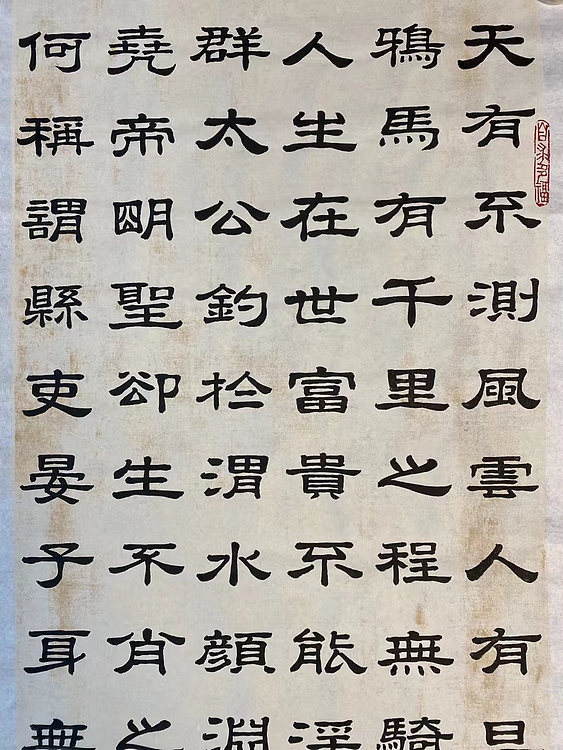 天有不測風雲人有
鴉馬有千里之程無騎
人生在世富貴不能淫
群太公釣於渭水顏淵
堯帝明聖卻生不肖之
何稱謂縣吏晏子身無